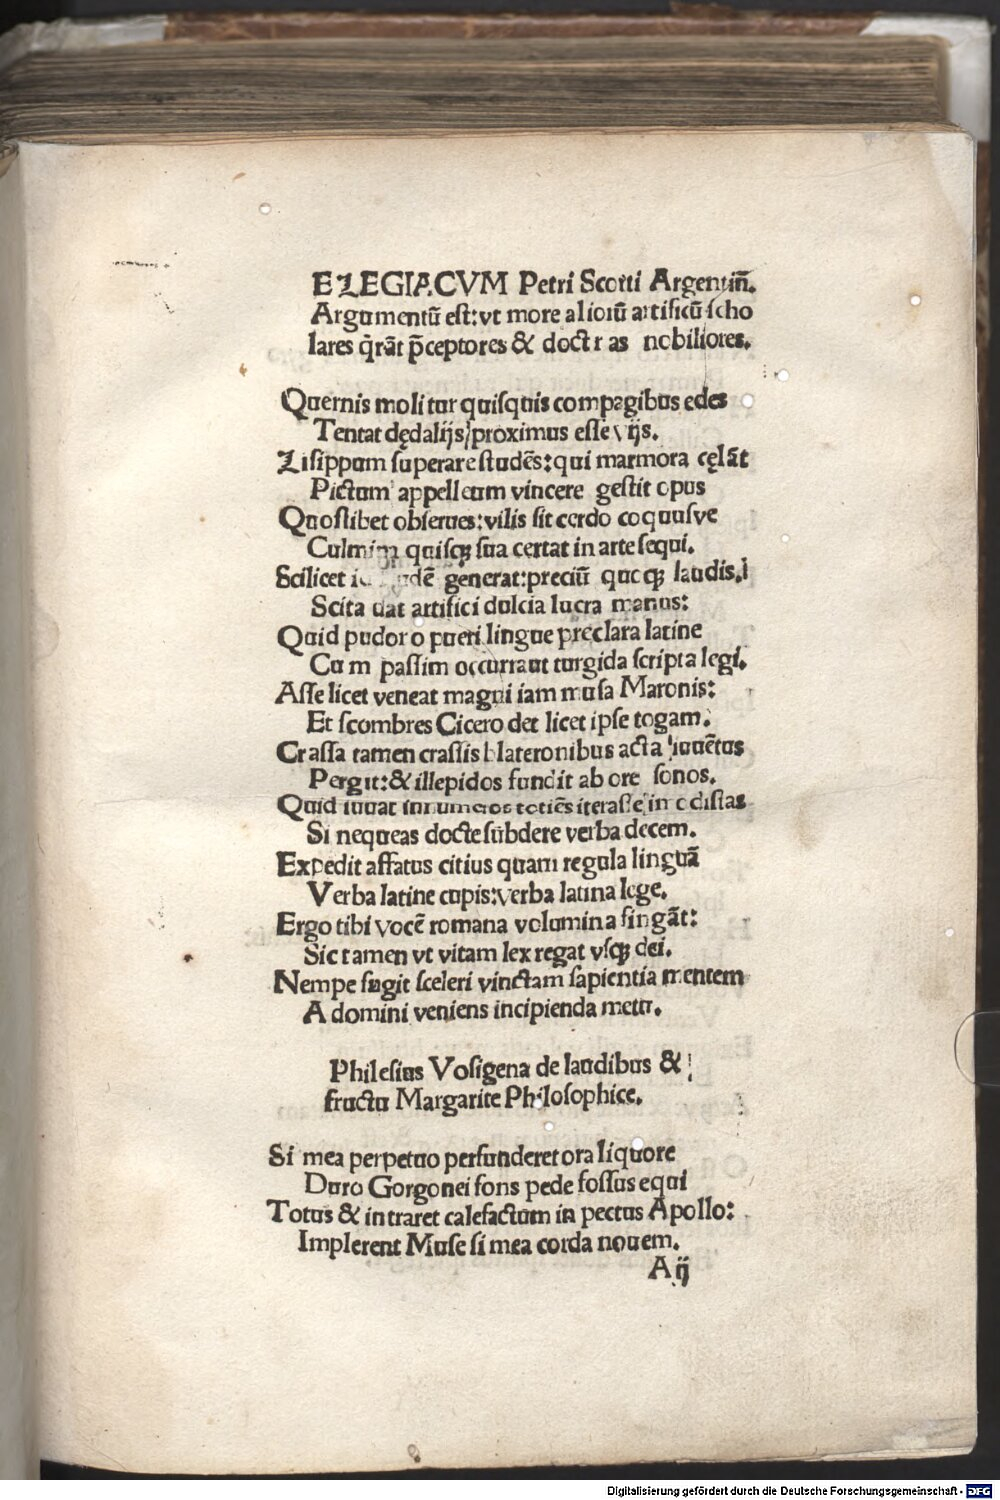 ELEGIACVM Petri Scotti Argentiñ.
Argumentū est: vt more aliorū artificū scho
lares q̄rāt p̄ceptores & doctr as nobiliores.
Quernis moli tur quisquis compagibus edes
Tentat dędalijs/proximus esse vijs.
Lisippum superare studēs: qui marmora cęlāt
Pictum appelleum vincere gestit opus
Quoslibet obserues: vilis sit cerdo coquusve
quisqꝫ sua certat in arte sequi.
Scilicet generat: preciū laudis.
Scita dat artifici dulcia lucra manus:
Quid pudor o pueri lingue preclara latine
Cu m passim occurrant turgida scripta legi.
Asse licet veneat magni iam musa Maronis:
Et scombres Cicero det licet ipse togam.
Crassa tamen crassis blateronibus acta iuuētus
Pergit: & illepidos fundit ab ore sonos.
Quid iuuat innumeros totiēs iterasse modistas
Si nequeas docte subdere verba decem.
Expedit affatus citius quam regula linguā
Verba latine cupis: verba latina lege.
Ergo tibi vocē romana volumina fingāt:
Sic tamen vt vitam lex regat vsqꝫ dei.
Nempe fugit sceleri vinctam sapientia mentem
A domini veniens incipienda metu.
Philesius Vosigena de laudibus &
fructu Margarite Philosophice.
Si mea perpetuo perfunderet ora liquore
Duro Gorgonei fons pede fossus equi
Totus & intraret calefactum in pectus Apollo:
Implerent Muse si mea corda nouem.
A ij
Digitalisierung gefördert durch die Deutsche Forschungsgemeinschaft - DFG